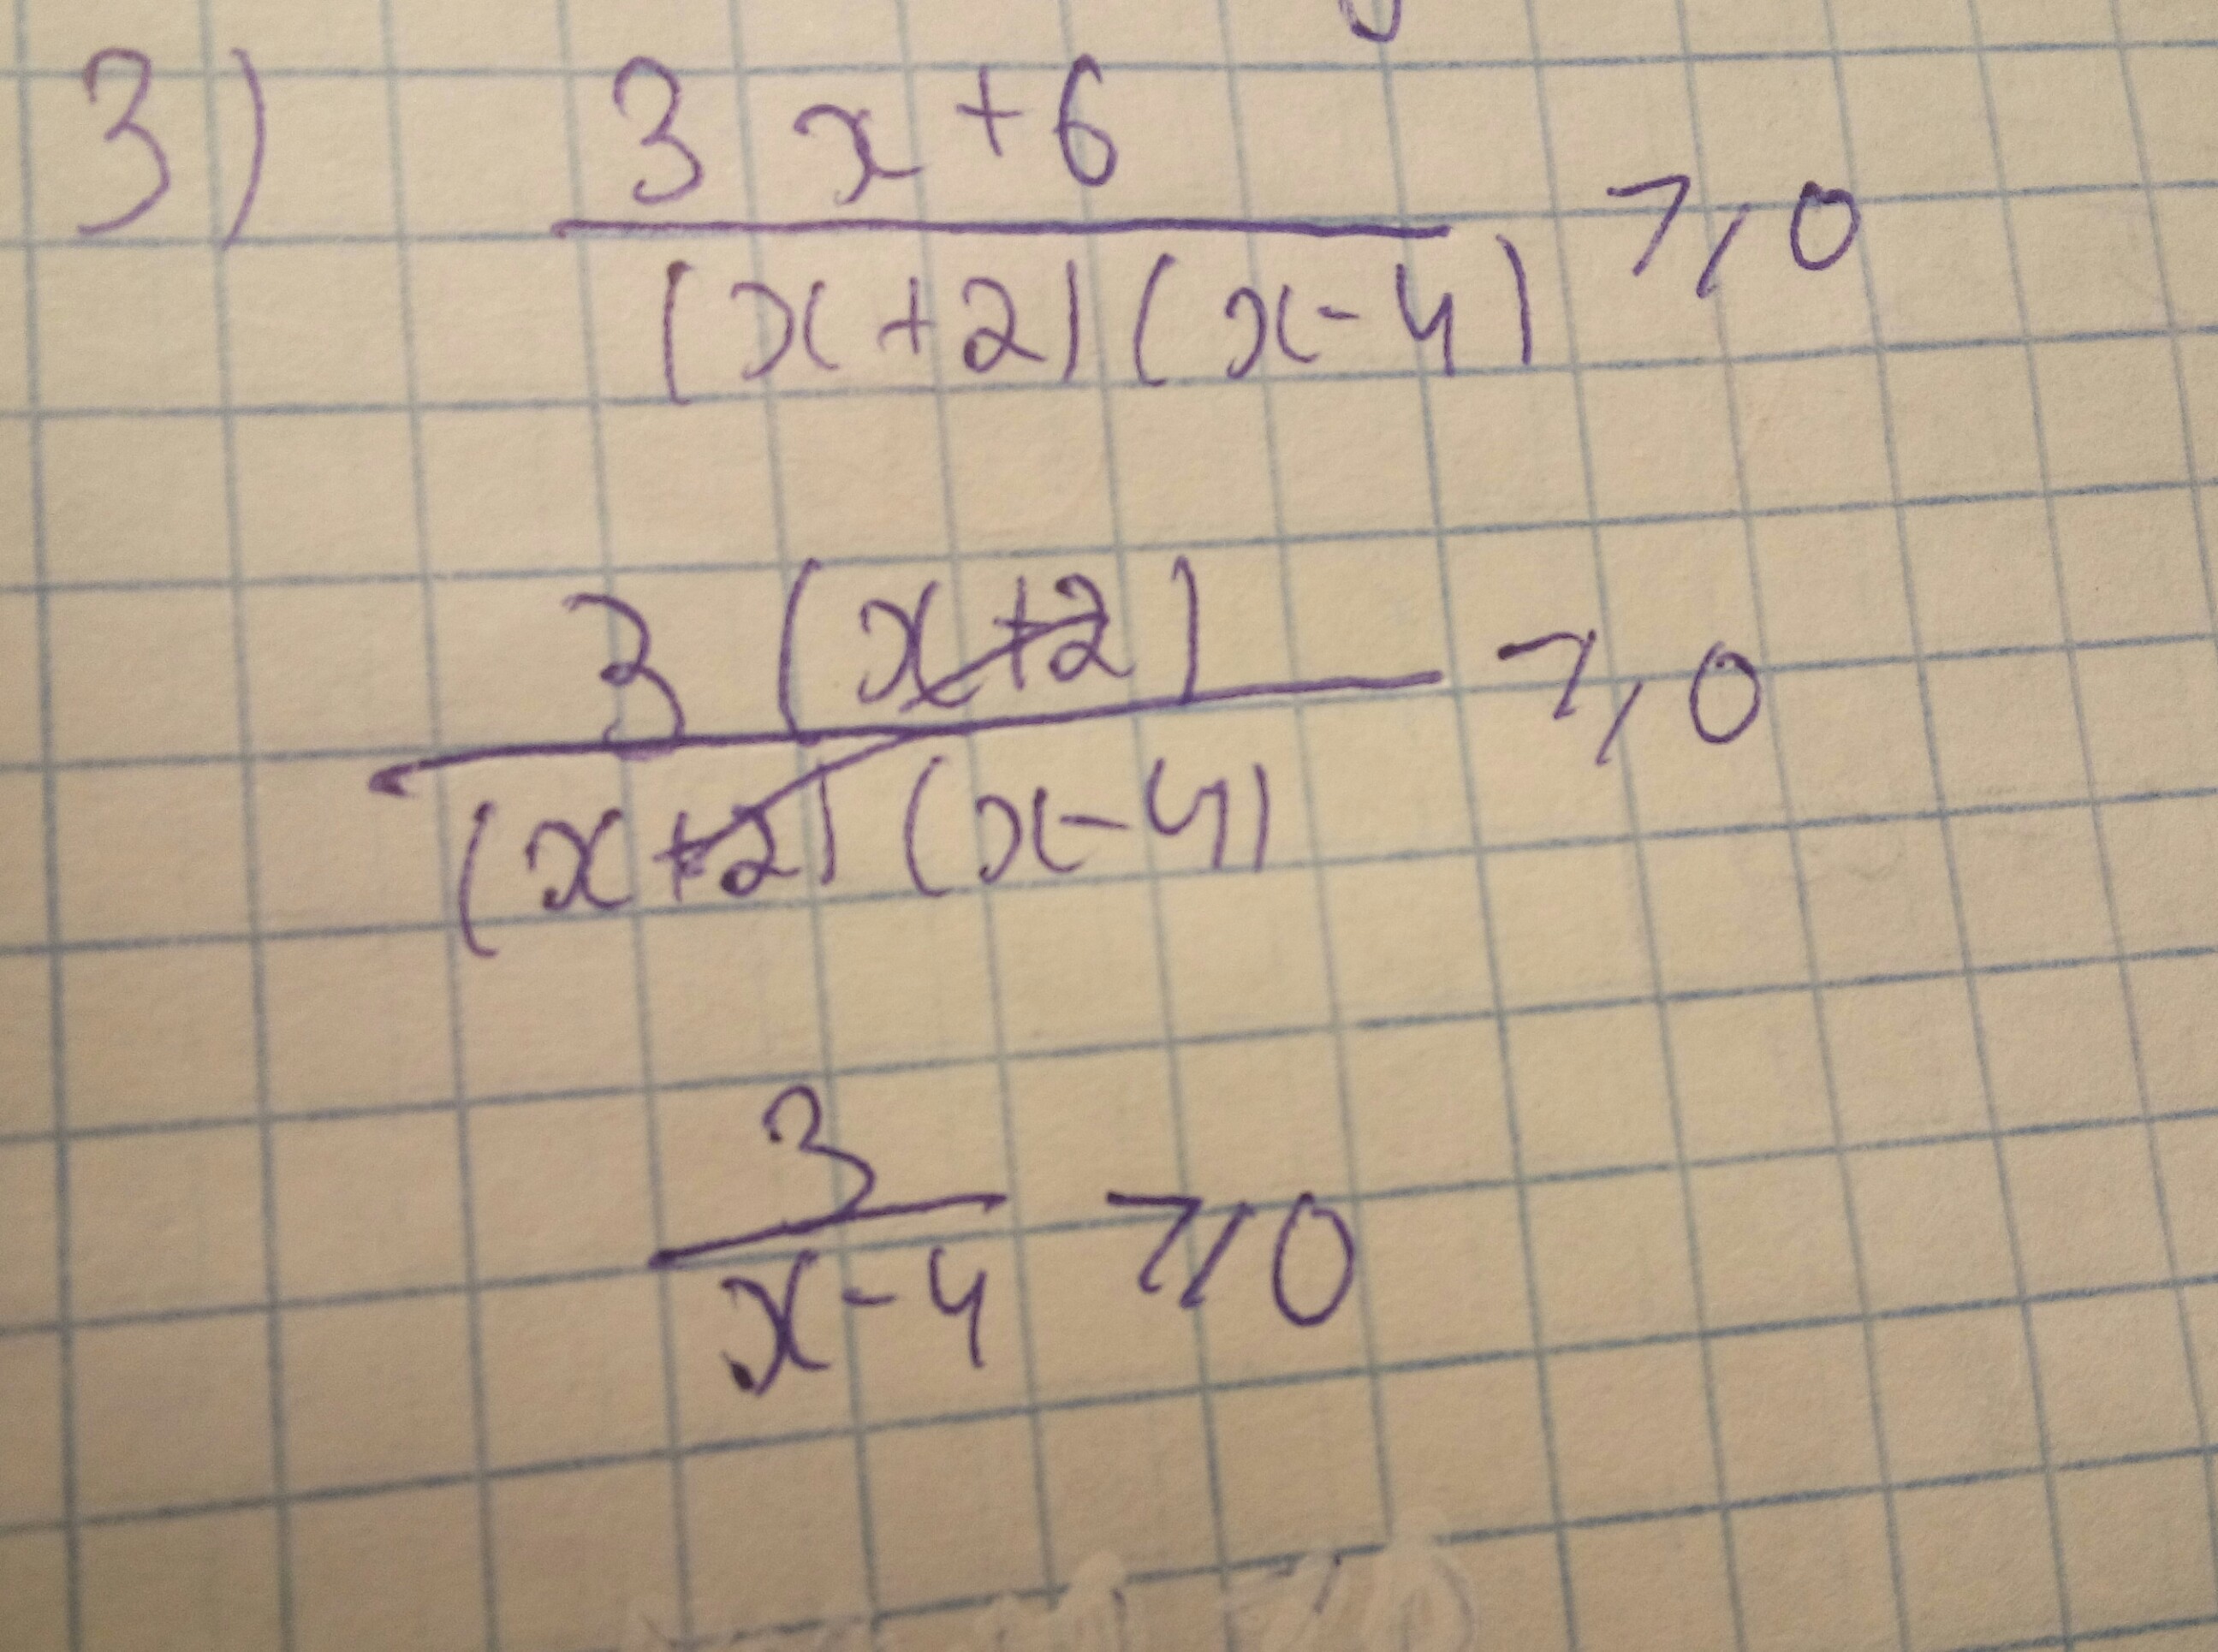 3) (3x+6)/((x+2)(x-4)) ⩾ 0
(3(x+2))/((x+2)(x-4)) ⩾ 0
3/(x-4) ⩾ 0